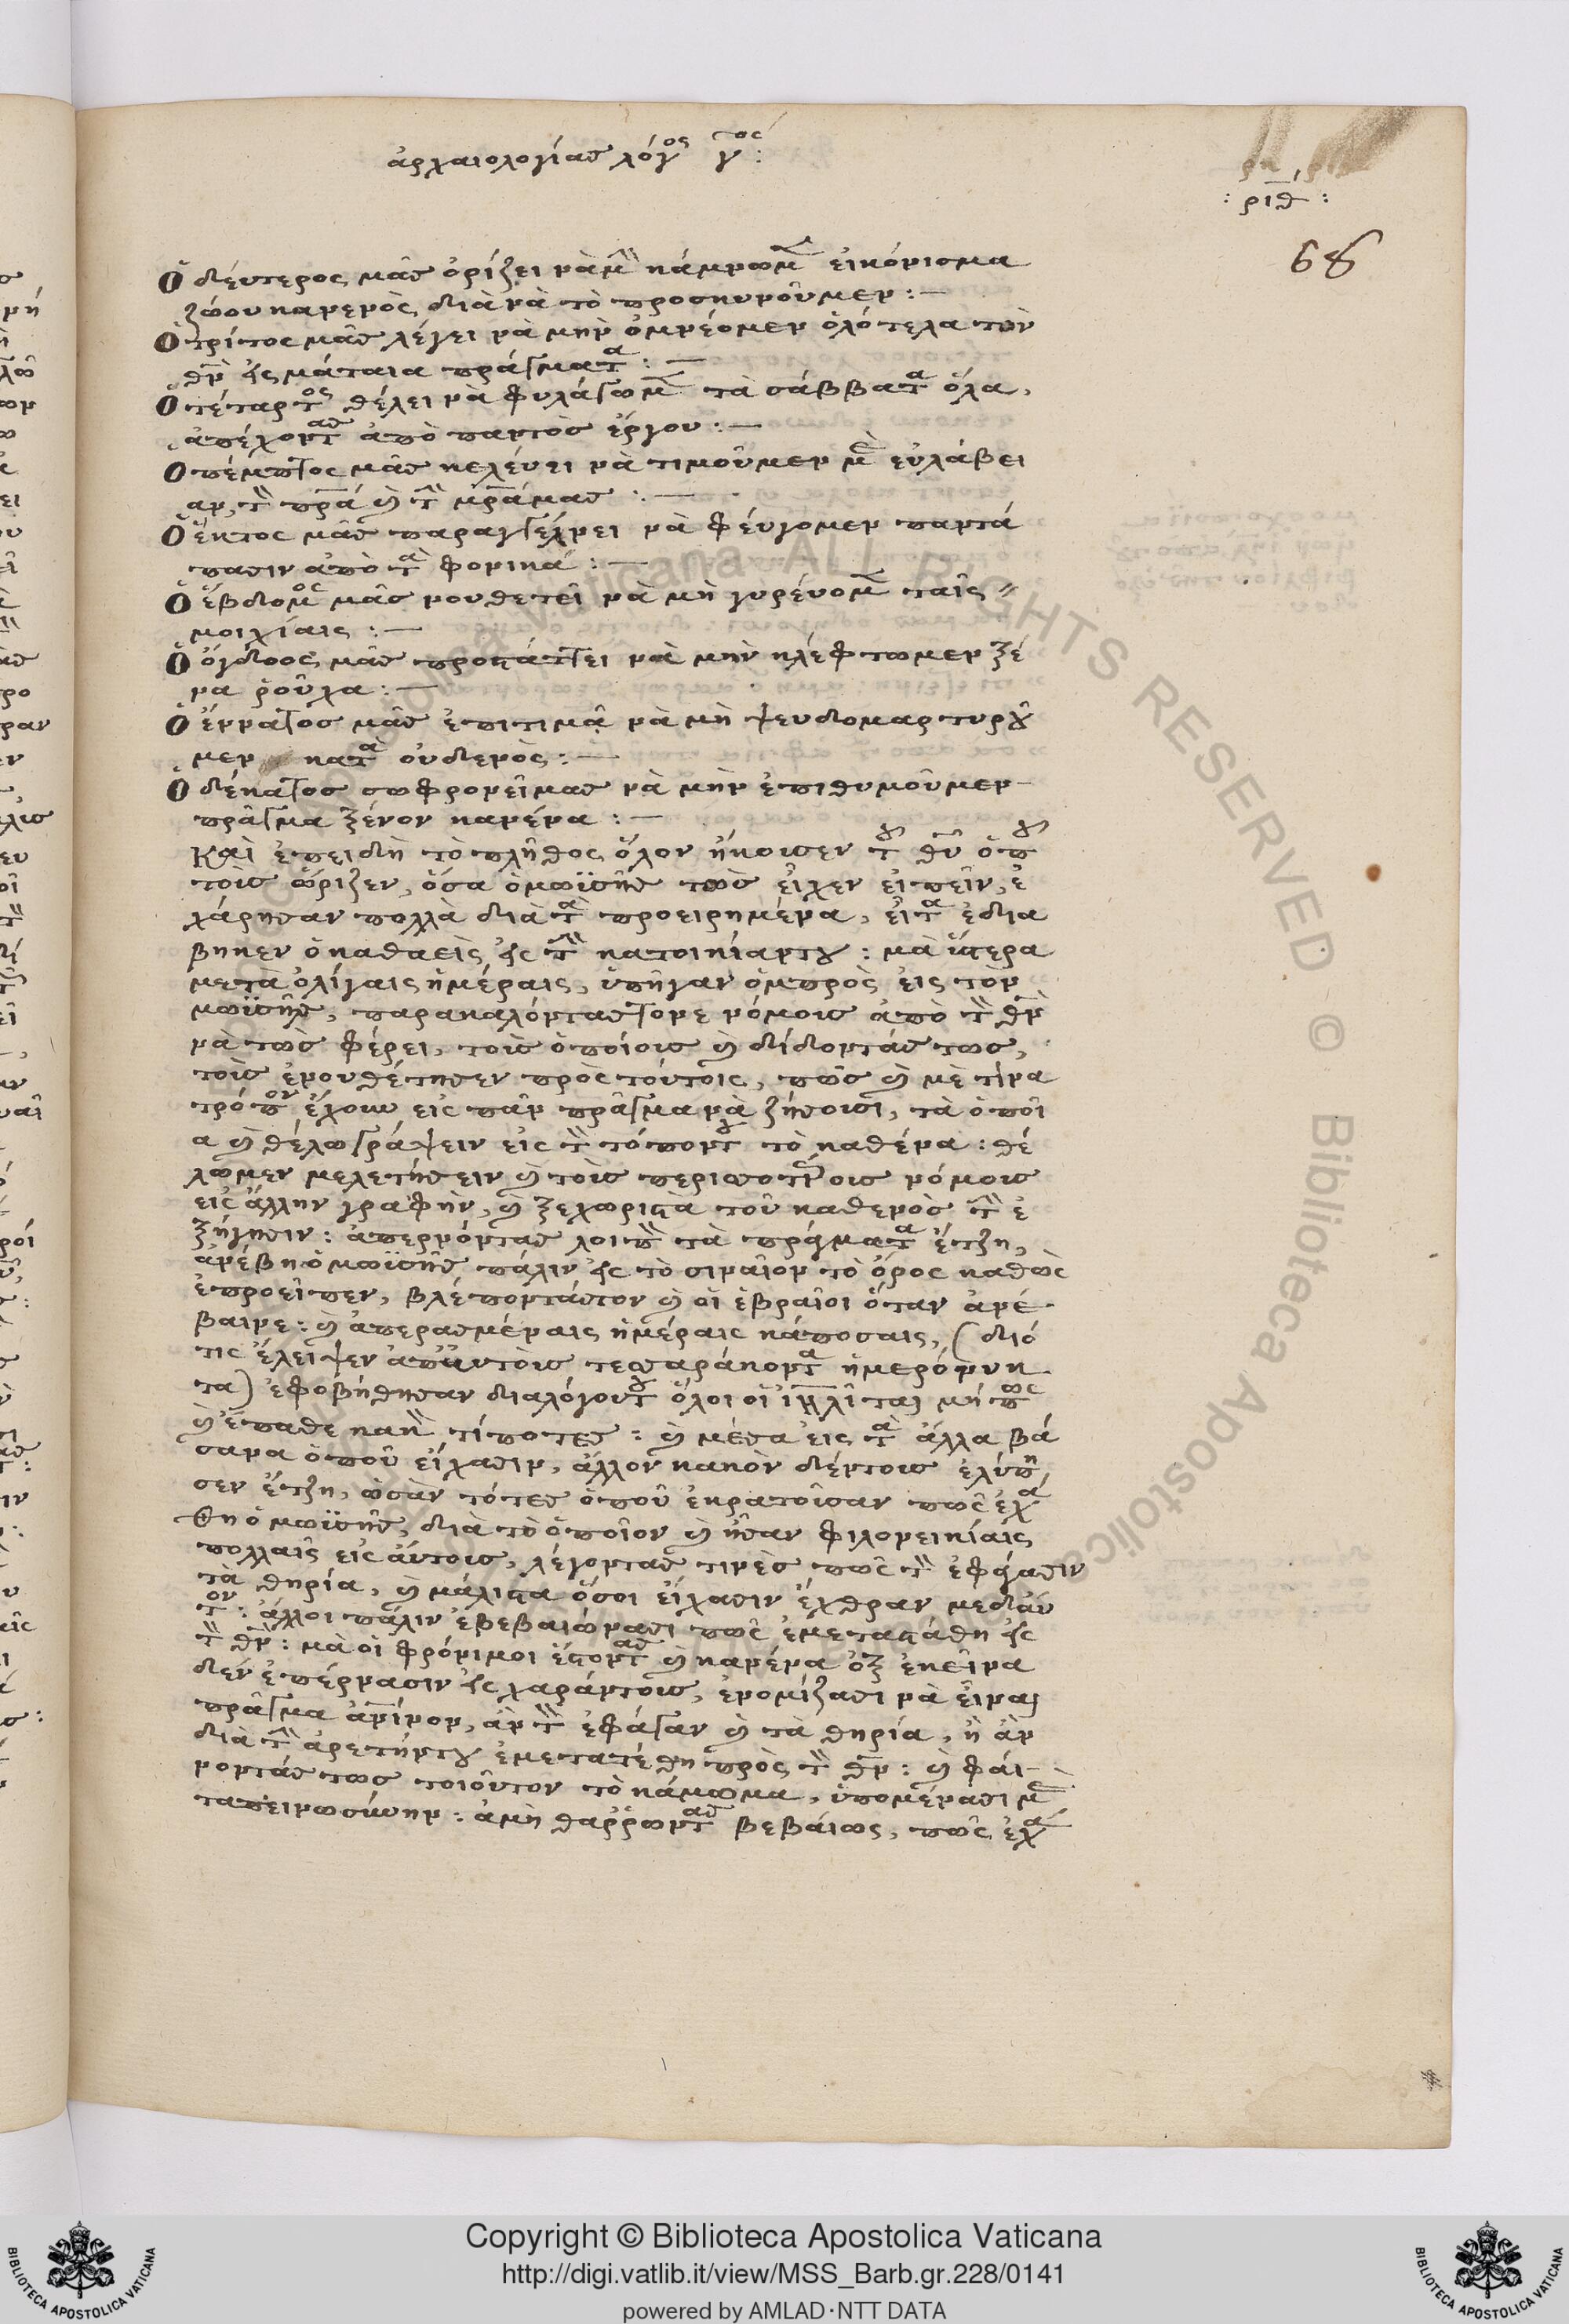 ἀρχαιολογίας λόγος γος:
: ριθ :
68
Ὁ δεύτερος μᾶς ὁρίζει νὰ μὴν κάμνωμεν εἰκόνισμα
ζώου κανενὸς, διὰ νὰ τὸ προσκυνοῦμεν: —
Ὁ τρίτος μᾶς λέγει νὰ μὴν ὀμνέομεν ὁλότελα τὸν
θν εἰς μάταια πράγματα: —
Ὁ τέταρτος θέλει νὰ φυλάγωμεν τὰ σάββατα ὅλα,
ἀπέχοντας ἀπὸ παντὸς ἔργου: —
Ὁ πέμπτος μᾶς κελεύει νὰ τιμοῦμεν μὲ εὐλάβει
αν, τὸν πρα καὶ τὴν μραμας: —
Ὁ ἕκτος μᾶς παραγγέλνει νὰ φεύγομεν παντά
πασιν ἀπὸ τὰ φονικά: —
Ὁ ἕβδομος μᾶς νουθετεῖ νὰ μὴ γυρεύομεν ταῖς
μοιχίαις: —
Ὁ ὄγδοος μᾶς προστάττει νὰ μὴν κλέφτωμεν ξέ
να ῥοῦχα: —
Ὁ ἔννατος μᾶς ἐπιτιμᾷ νὰ μὴ ψευδομαρτυροῦ
μεν κατὰ οὐδενὸς: —
Ὁ δέκατος σωφρονεῖ μας νὰ μὴν ἐπιθυμοῦμεν
πρᾶγμα ξένον κανένα: —
Καὶ ἐπειδὴ τὸ πλῆθος ὅλον ἤκουσεν τοῦ θυ ὁποῦ
τοὺς ὥριζεν, ὅσα ὁ μωϋσῆς τὼς εἶχεν εἰπεῖν, ἐ
χάρησαν πολλὰ διὰ τὰ προειρημένα, εἶτα ἐδια
βηκεν ὁ καθαεὶς εἰς τὴν κατοικίαντου: μὰ ὕστερα
μετὰ ὀλίγαις ἡμέραις, ὑπῆγαν ὀμπρὸς εἰς τὸν
μωϋσῆν, παρακαλόντας τονε νόμους ἀπὸ τὸν θν
νὰ τὼς φέρει, τοὺς ὁποίους καὶ δίδοντάς τως,
τοὺς ἐνουθέτησεν πρὸς τούτοις, πῶς καὶ μὲ τίνα
τρόπον ἔχουν εἰς πᾶν πρᾶγμα νὰ ζήσουσι, τὰ ὁποῖ
α καὶ θέλω γράψειν εἰς τὸν τόπον του τὸ καθένα: θέ
λωμεν μελετήσειν καὶ τοὺς περισσοτέρους νόμους
εἰς ἄλλην γραφὴν, καὶ ξεχωριστὰ τοῦ καθενὸς τὴν ἐ
ξήγησιν: ἀπερνόντας λοιπὸν τὰ πράγματα ἔτζη,
ἀνέβη ὁ μωϋσῆς πάλιν εἰς τὸ σιναῖον τὸ ὄρος καθὼς
ἐπροεῖπεν, βλέποντάς τον καὶ οἱ ἑβραῖοι ὅταν ἀνέ
βαινε: καὶ ἀπερασμέναις ἡμέραις κάποσαις, (διό
τις ἔλειψεν ἀπ' αὐτοὺς τεσσαράκοντα ἡμερόνυκ
τα) ἐφοβήθησαν διαλόγουτου ὅλοι οἱ ἰηλῖται μήπως
καὶ ἔπαθε κανὲν τίποτες: καὶ μέσα εἰς τὰ ἄλλα βά
σανα ὁποῦ εἴχασιν, ἄλλον κακὸν δέντους ἐλύπη
σεν ἔτζη, ὡσὰν τότες ὁποῦ ἐκρατοῦσαν πῶς ἐχά
θη ὁ μωϋσῆς, διὰ τὸ ὁποῖον καὶ ἦσαν φιλονεικίαις
πολλαῖς εἰς αὐτοὺς, λέγοντας τινὲς πῶς τὸν ἐφάγασιν
τὰ θηρία, καὶ μάλιστα ὅσοι εἴχασιν ἔχθραν μεδαύ
τον: ἄλλοι πάλιν ἐβεβαιώνασι πῶς ἐμεταστάθη εἰς
τὸν θν: μὰ οἱ φρόνιμοι ἔστοντας καὶ κανένα ὀξ ἐκεῖνα
δὲν ἐπέρνασιν εἰς χαράντους, ἐνομίζασι νὰ εἶναι
πρᾶγμα ἀνίνον, ἀν τὸν ἐφάγαν καὶ τὰ θηρία, ἢ ἀν
διὰ τὴν ἀρετήντου ἐμετατέθη πρὸς τὸν θν: καὶ φαί
νοντάς τως τοιοῦτον τὸ κάμωμα, ὑπομένασι μὲ
ταπεινωσύνην: ἀμὴ θαῤῥώντας βεβαίως, πῶς ἐχά
Copyright © Biblioteca Apostolica Vaticana
http://digi.vatlib.it/view/MSS_Barb.gr.228/0141
powered by AMLAD·NTT DATA